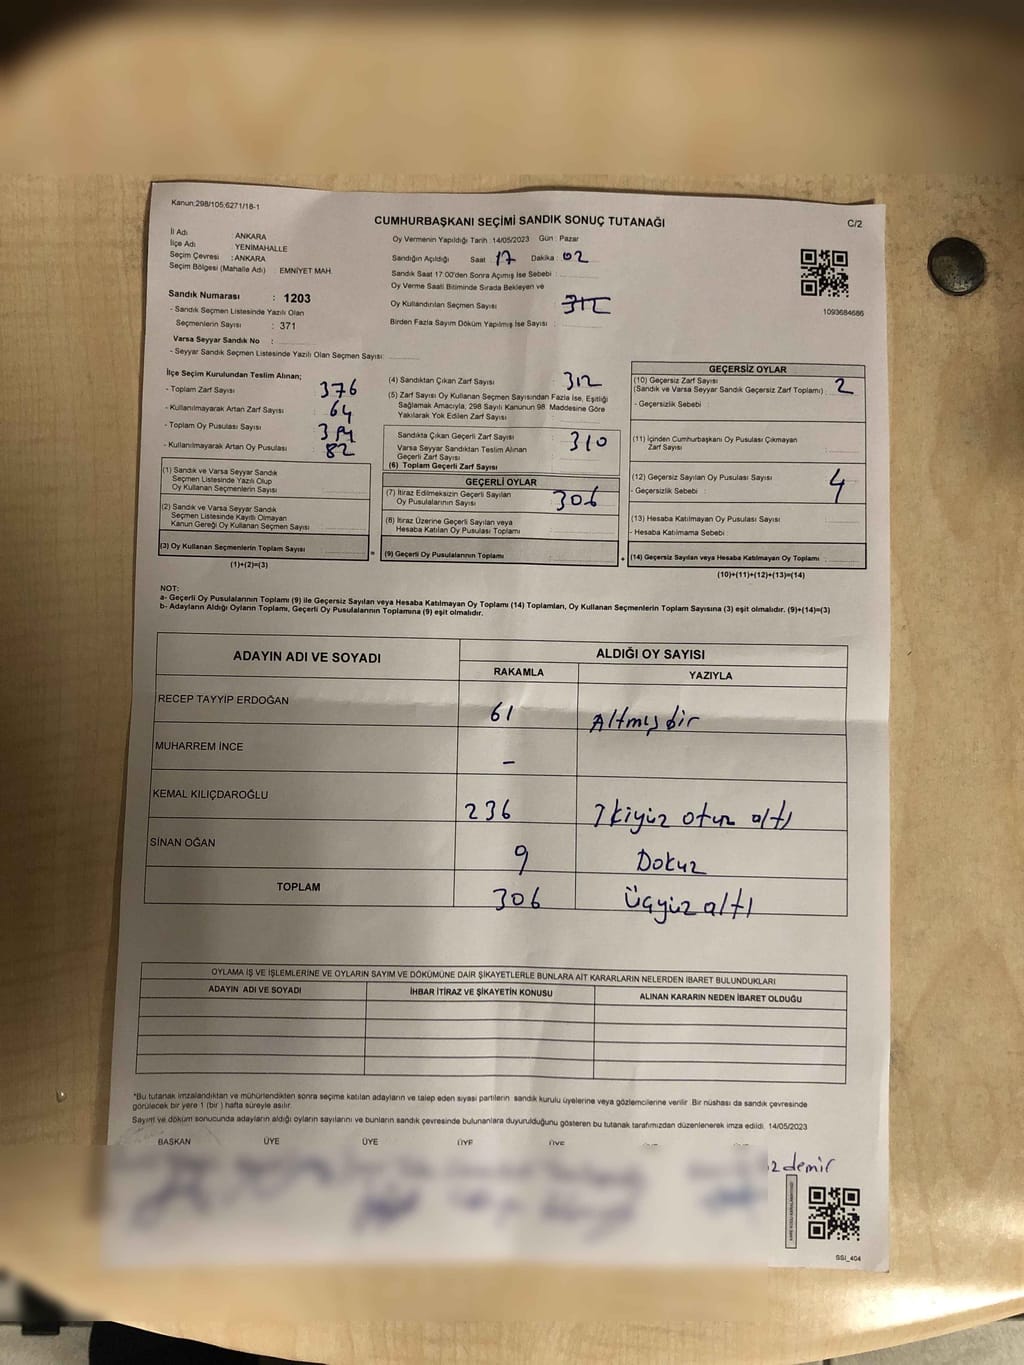 Kanun:298/105;6271/18-1
CUMHURBAŞKANI SEÇİMİ SANDIK SONUÇ TUTANAĞI
C/2
İl Adı : ANKARA
İlçe Adı : YENİMAHALLE
Seçim Çevresi : ANKARA
Seçim Bölgesi (Mahalle Adı) : EMNİYET MAH.
Sandık Numarası : 1203
- Sandık Seçmen Listesinde Yazılı Olan
Seçmenlerin Sayısı : 371
Varsa Seyyar Sandık No :
- Seyyar Sandık Seçmen Listesinde Yazılı Olan Seçmen Sayısı:
Oy Vermenin Yapıldığı Tarih : 14/05/2023 Gün : Pazar
Sandığın Açıldığı Saat 17 Dakika : 02
Sandık Saat 17:00'den Sonra Açımış İse Sebebi :
Oy Verme Saati Bitiminde Sırada Bekleyen ve
Oy Kullandırılan Seçmen Sayısı
Birden Fazla Sayım Döküm Yapılmış İse Sayısı :
1093684686
İlçe Seçim Kurulundan Teslim Alınan;
- Toplam Zarf Sayısı 376
- Kullanılmayarak Artan Zarf Sayısı : 64
- Toplam Oy Pusulası Sayısı
- Kullanılmayarak Artan Oy Pusulası : 82
(1) Sandık ve Varsa Seyyar Sandık
Seçmen Listesinde Yazılı Olup
Oy Kullanan Seçmenlerin Sayısı
(2) Sandık ve Varsa Seyyar Sandık
Seçmen Listesinde Kayıtlı Olmayan
Kanun Gereği Oy Kullanan Seçmen Sayısı
(3) Oy Kullanan Seçmenlerin Toplam Sayısı
(1)+(2)=(3)
(4) Sandıktan Çıkan Zarf Sayısı : 312
(5) Zarf Sayısı Oy Kullanan Seçmen Sayısından Fazla İse, Eşitliği
Sağlamak Amacıyla, 298 Sayılı Kanunun 98. Maddesine Göre
Yakılarak Yok Edilen Zarf Sayısı :
Sandıkta Çıkan Geçerli Zarf Sayısı : 310
Varsa Seyyar Sandıktan Teslim Alınan
Geçerli Zarf Sayısı
(6) Toplam Geçerli Zarf Sayısı
GEÇERLİ OYLAR
(7) İtiraz Edilmeksizin Geçerli Sayılan
Oy Pusulalarının Sayısı 306
(8) İtiraz Üzerine Geçerli Sayılan veya
Hesaba Katılan Oy Pusulası Toplamı
= (9) Geçerli Oy Pusulalarının Toplamı
GEÇERSİZ OYLAR
(10) Geçersiz Zarf Sayısı
(Sandık ve Varsa Seyyar Sandık Geçersiz Zarf Toplamı) 2
- Geçersizlik Sebebi :
(11) İçinden Cumhurbaşkanı Oy Pusulası Çıkmayan
Zarf Sayısı
(12) Geçersiz Sayılan Oy Pusulası Sayısı : 4
- Geçersizlik Sebebi :
(13) Hesaba Katılmayan Oy Pusulası Sayısı
- Hesaba Katılmama Sebebi :
+ (14) Geçersiz Sayılan veya Hesaba Katılmayan Oy Toplamı
(10)+(11)+(12)+(13)=(14)
NOT:
a- Geçerli Oy Pusulalarının Toplamı (9) ile Geçersiz Sayılan veya Hesaba Katılmayan Oy Toplamı (14) Toplamları, Oy Kullanan Seçmenlerin Toplam Sayısına (3) eşit olmalıdır. (9)+(14)=(3)
b- Adayların Aldığı Oyların Toplamı, Geçerli Oy Pusulalarının Toplamına (9) eşit olmalıdır.
ADAYIN ADI VE SOYADI
ALDIĞI OY SAYISI
RAKAMLA YAZIYLA
RECEP TAYYİP ERDOĞAN 61 Altmış bir
MUHARREM İNCE -
KEMAL KILIÇDAROĞLU 236 İkiyüz otuz altı
SİNAN OĞAN 9 Dokuz
TOPLAM 306 Üçyüz altı
OYLAMA İŞ VE İŞLEMLERİNE VE OYLARIN SAYIM VE DÖKÜMÜNE DAİR ŞİKAYETLERLE BUNLARA AİT KARARLARIN NELERDEN İBARET BULUNDUKLARI
ADAYIN ADI VE SOYADI İHBAR İTİRAZ VE ŞİKAYETİN KONUSU ALINAN KARARIN NEDEN İBARET OLDUĞU
*Bu tutanak imzalandıktan ve mühürlendikten sonra seçime katılan adayların ve talep eden siyasi partilerin sandık kurulu üyelerine veya gözlemcilerine verilir. Bir nüshası da sandık çevresinde
görülecek bir yere 1 (bir ) hafta süreyle asılır.
Sayım ve döküm sonucunda adayların aldığı oyların sayılarını ve bunların sandık çevresinde bulunanlara duyurulduğunu gösteren bu tutanak tarafımızdan düzenlenerek imza edildi. 14/05/2023
BAŞKAN ÜYE ÜYE ÜYE ÜYE
zdemir
SSİ_404